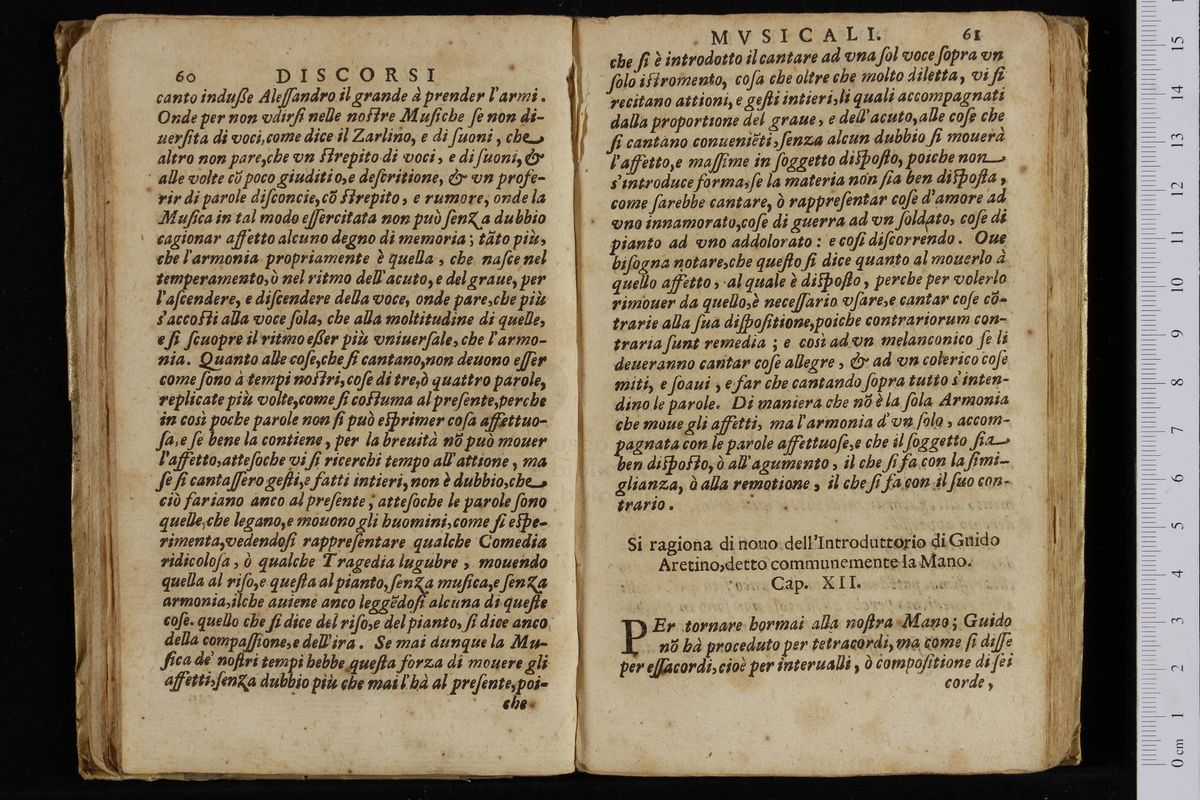 60 DISCORSI
canto induſſe Aleſſandro il grande à prender l'armi.
Onde per non vdirſi nelle noſtre Muſiche ſe non di-
uerſita di voci, come dice il Zarlino, e di ſuoni, che
altro non pare, che vn ſtrepito di voci, e di ſuoni, &
alle volte cõ poco giuditio, e deſcritione, & vn profe-
rir di parole diſconcie, cõ ſtrepito, e rumore, onde la
Muſica in tal modo eſſercitata non può ſenza dubbio
cagionar affetto alcuno degno di memoria; tãto più,
che l'armonia propriamente è quella, che naſce nel
temperamento, ò nel ritmo dell'acuto, e del graue, per
l'aſcendere, e diſcendere della voce, onde pare, che più
s'accoſti alla voce ſola, che alla moltitudine di quelle,
e ſi ſcuopre il ritmo eſſer più vniuerſale, che l'armo-
nia. Quanto alle coſe, che ſi cantano, non deuono eſſer
come ſono à tempi noſtri, coſe di tre, ò quattro parole,
replicate più volte, come ſi coſtuma al preſente, perche
in così poche parole non ſi può eſprimer coſa affettuo-
ſa, e ſe bene la contiene, per la breuità nõ può mouer
l'affetto, atteſoche vi ſi ricerchi tempo all'attione, ma
ſe ſi cantaſſero geſti, e fatti intieri, non è dubbio, che
ciò fariano anco al preſente, atteſoche le parole ſono
quelle, che legano, e mouono gli huomini, come ſi eſpe-
rimenta, vedendoſi rappreſentare qualche Comedia
ridicoloſa, ò qualche Tragedia lugubre, mouendo
quella al riſo, e queſta al pianto, ſenza muſica, e ſenza
armonia, ilche auiene anco leggẽdoſi alcuna di queſte
coſe. quello che ſi dice del riſo, e del pianto, ſi dice anco
della compaſſione, e dell'ira. Se mai dunque la Mu-
ſica de' noſtri tempi hebbe queſta forza di mouere gli
affetti, ſenza dubbio più che mai l'hà al preſente, poi-
che
MVSICALI. 61
che ſi è introdotto il cantare ad vna ſol voce ſopra vn
ſolo iſtromento, coſa che oltre che molto diletta, vi ſi
recitano attioni, e geſti intieri, li quali accompagnati
dalla proportione del graue, e dell'acuto, alle coſe che
ſi cantano conueniẽti, ſenza alcun dubbio ſi mouerà
l'affetto, e maſſime in ſoggetto diſpoſto, poiche non
s'introduce forma, ſe la materia non ſia ben diſpoſta,
come ſarebbe cantare, ò rappreſentar coſe d'amore ad
vno innamorato, coſe di guerra ad vn ſoldato, coſe di
pianto ad vno addolorato: e coſi diſcorrendo. Oue
biſogna notare, che queſto ſi dice quanto al mouerlo à
quello affetto, al quale è diſpoſto, perche per volerlo
rimouer da quello, è neceſſario vſare, e cantar coſe cõ-
trarie alla ſua diſpoſitione, poiche contrariorum con-
traria ſunt remedia; e così ad vn melanconico ſe li
deueranno cantar coſe allegre, & ad vn colerico coſe
miti, e ſoaui, e far che cantando ſopra tutto s'inten-
dino le parole. Di maniera che nõ è la ſola Armonia
che moue gli affetti, ma l'armonia d'vn ſolo, accom-
pagnata con le parole affettuoſe, e che il ſoggetto ſia
ben diſpoſto, ò all'agumento, il che ſi fa con la ſimi-
glianza, ò alla remotione, il che ſi fa con il ſuo con-
trario.
Si ragiona di nouo dell'Introduttorio di Guido
Aretino, detto communemente la Mano.
Cap. XII.
PEr tornare hormai alla noſtra Mano; Guido
nõ hà proceduto per tetracordi, ma come ſi diſſe
per eſſacordi, cioè per interualli, ò compoſitione di ſei
corde,
0 cm 1 2 3 4 5 6 7 8 9 10 11 12 13 14 15